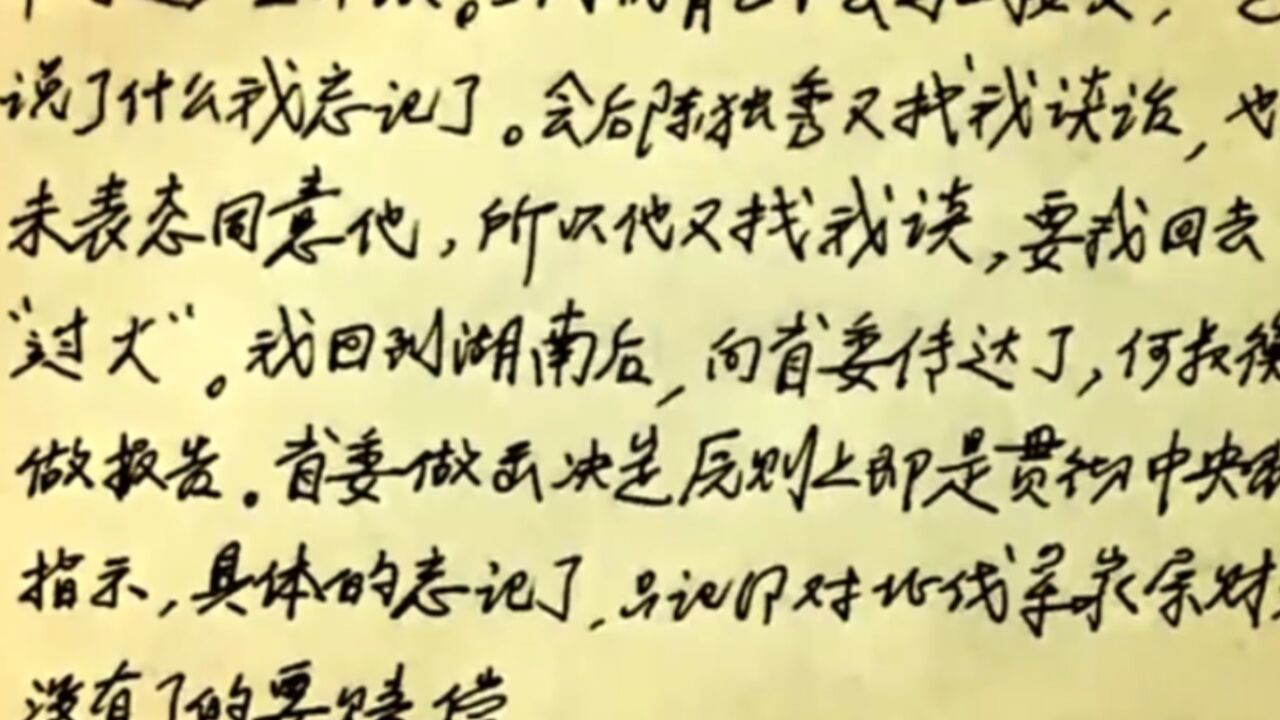 说了什么我忘记了。会后陈独秀又找我谈话,也
未表态同意他,所以他又找我谈,要我回去
“过火”。我回到湖南后,向省委传达了,何叔衡
做报告。省委做出决定原则上即是贯彻中央
指示,具体的忘记了,只记即对北伐军家属财
没有了的要赔偿